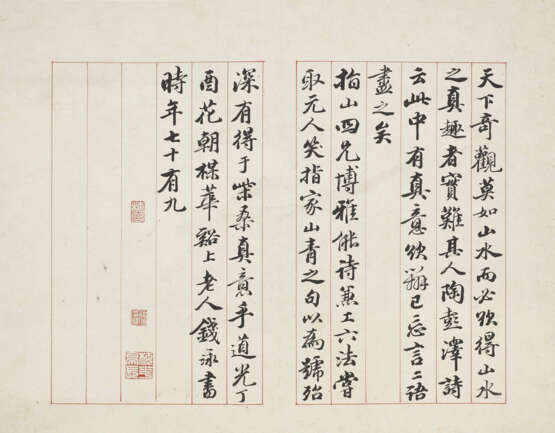 天下奇觀莫如山水而必欲得山水
之真趣者實難其人陶彭澤詩
云此中有真意欲辯已忘言二語
盡之矣
指山四兄博雅能詩兼工六法嘗
取元人笑指家山青之句以為號殆
深有得于柴桑真意乎道光丁
酉花朝楳華谿上老人錢泳書
時年七十有九